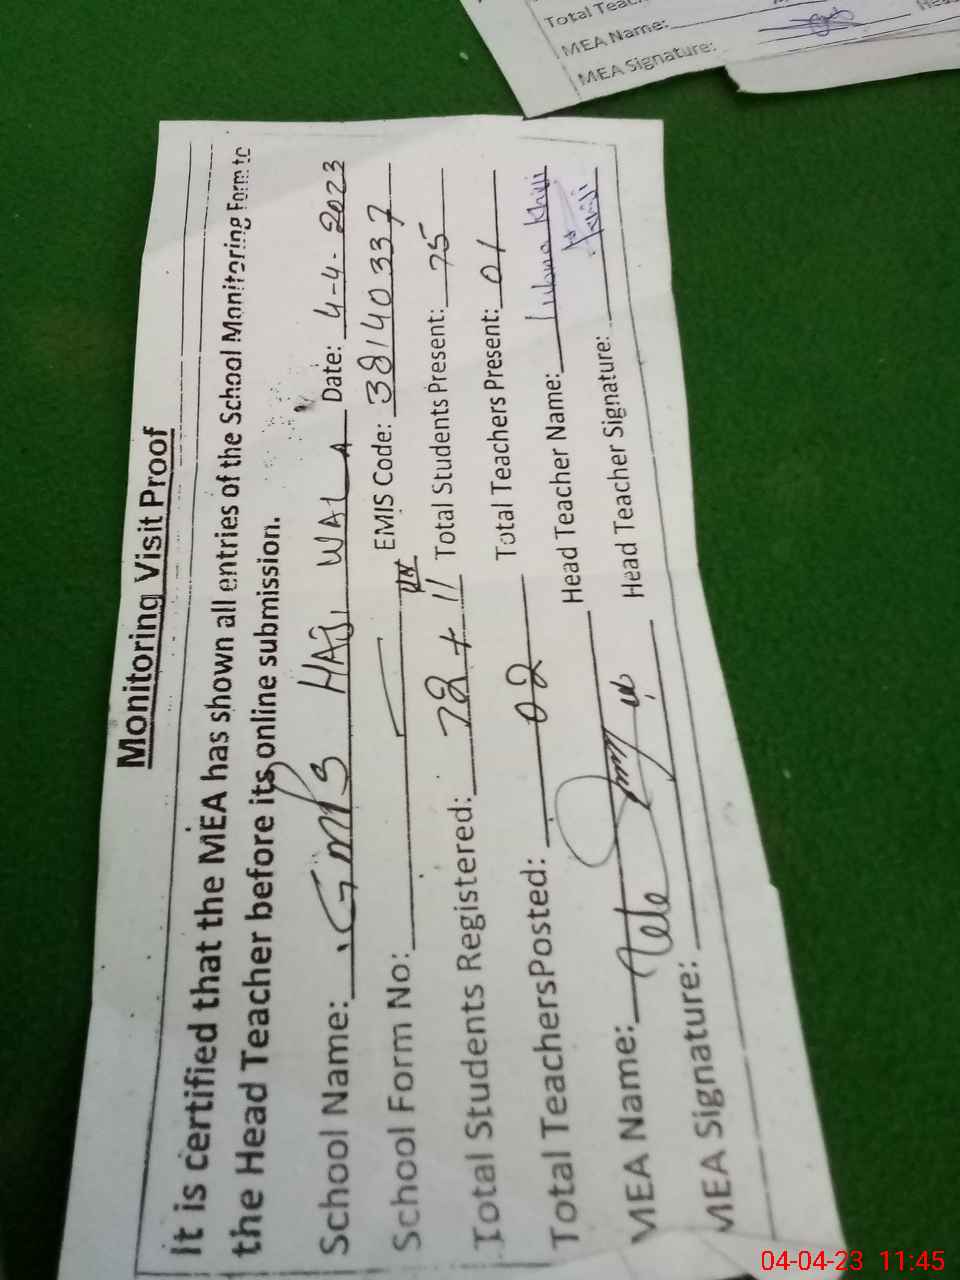 Total Teac
MEA Name:
MEA Signature:
Monitoring Visit Proof
It is certified that the MEA has shown all entries of the School Monitoring Form to
the Head Teacher before its online submission.
School Name: GMPS HAJI WALA Date: 4-4-2023
School Form No: EMIS Code: 38140337
Total Students Registered: 72+11 Total Students Present: 75
Total TeachersPosted: 02 Total Teachers Present: 01
MEA Name: Head Teacher Name:
MEA Signature: Head Teacher Signature:
04-04-23 11:45